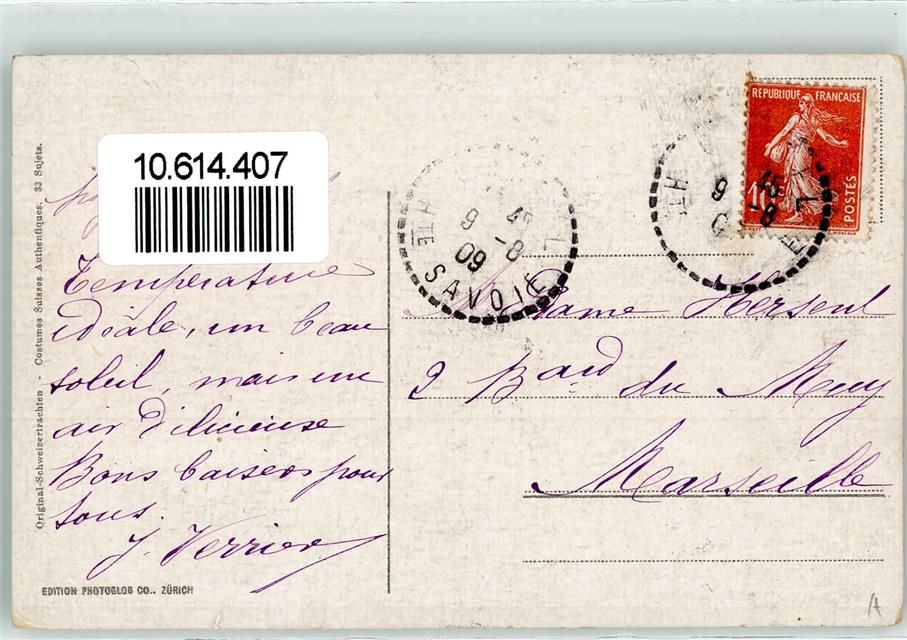 Original-Schweizertrachten. - Costumes Suisses Authentiques. 33 Sujets.
10.614.407
Température
idéale, un beau
soleil, mais une
air délicieuse
Bons baisers pour
tous.
J. Verrier
EDITION PHOTOGLOB CO., ZÜRICH
HTE SAVOIE
9 -8
09
REPUBLIQUE FRANÇAISE
10c
POSTES
9 -8
Madame Herseul
2 Bard du Muy
Marseille